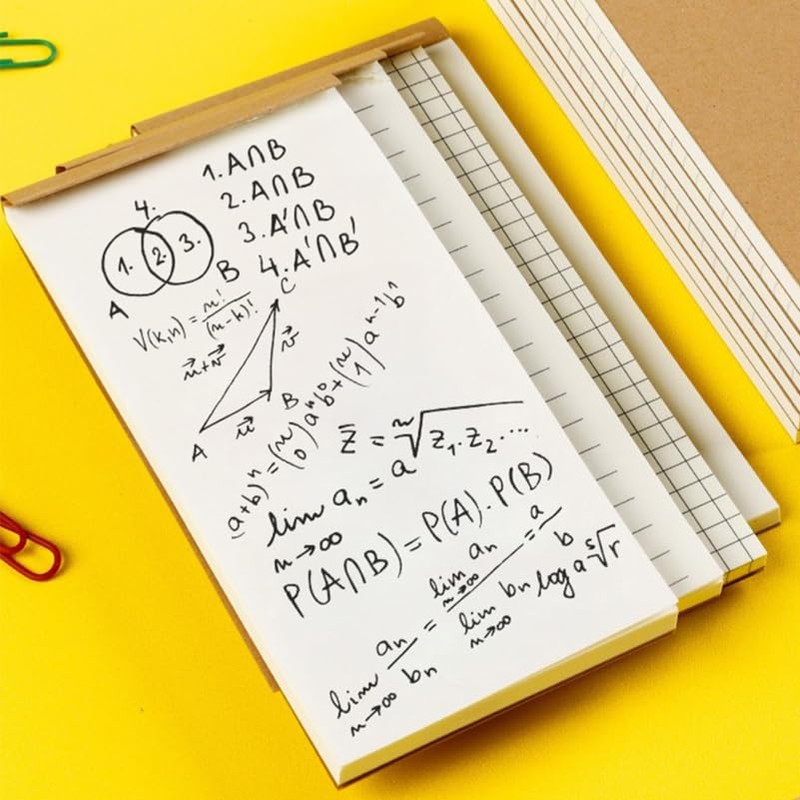 1. A∩B
2. A∩B
3. A'∩B
4. A'∩B'
4.
1. 2. 3.
A B
V(k,n) = n!/(n-k)!
C
u⃗+v⃗ v⃗
B
A u⃗
(a+b)ⁿ = (n 0) aⁿb⁰ + (n 1) aⁿ⁻¹b¹
z̄ = ⁿ√z₁.z₂.…
lim n→∞ aₙ = a
P(A∩B) = P(A).P(B)
lim n→∞ aₙ/bₙ = lim n→∞ aₙ / lim n→∞ bₙ = a/b
log a ˢ√r